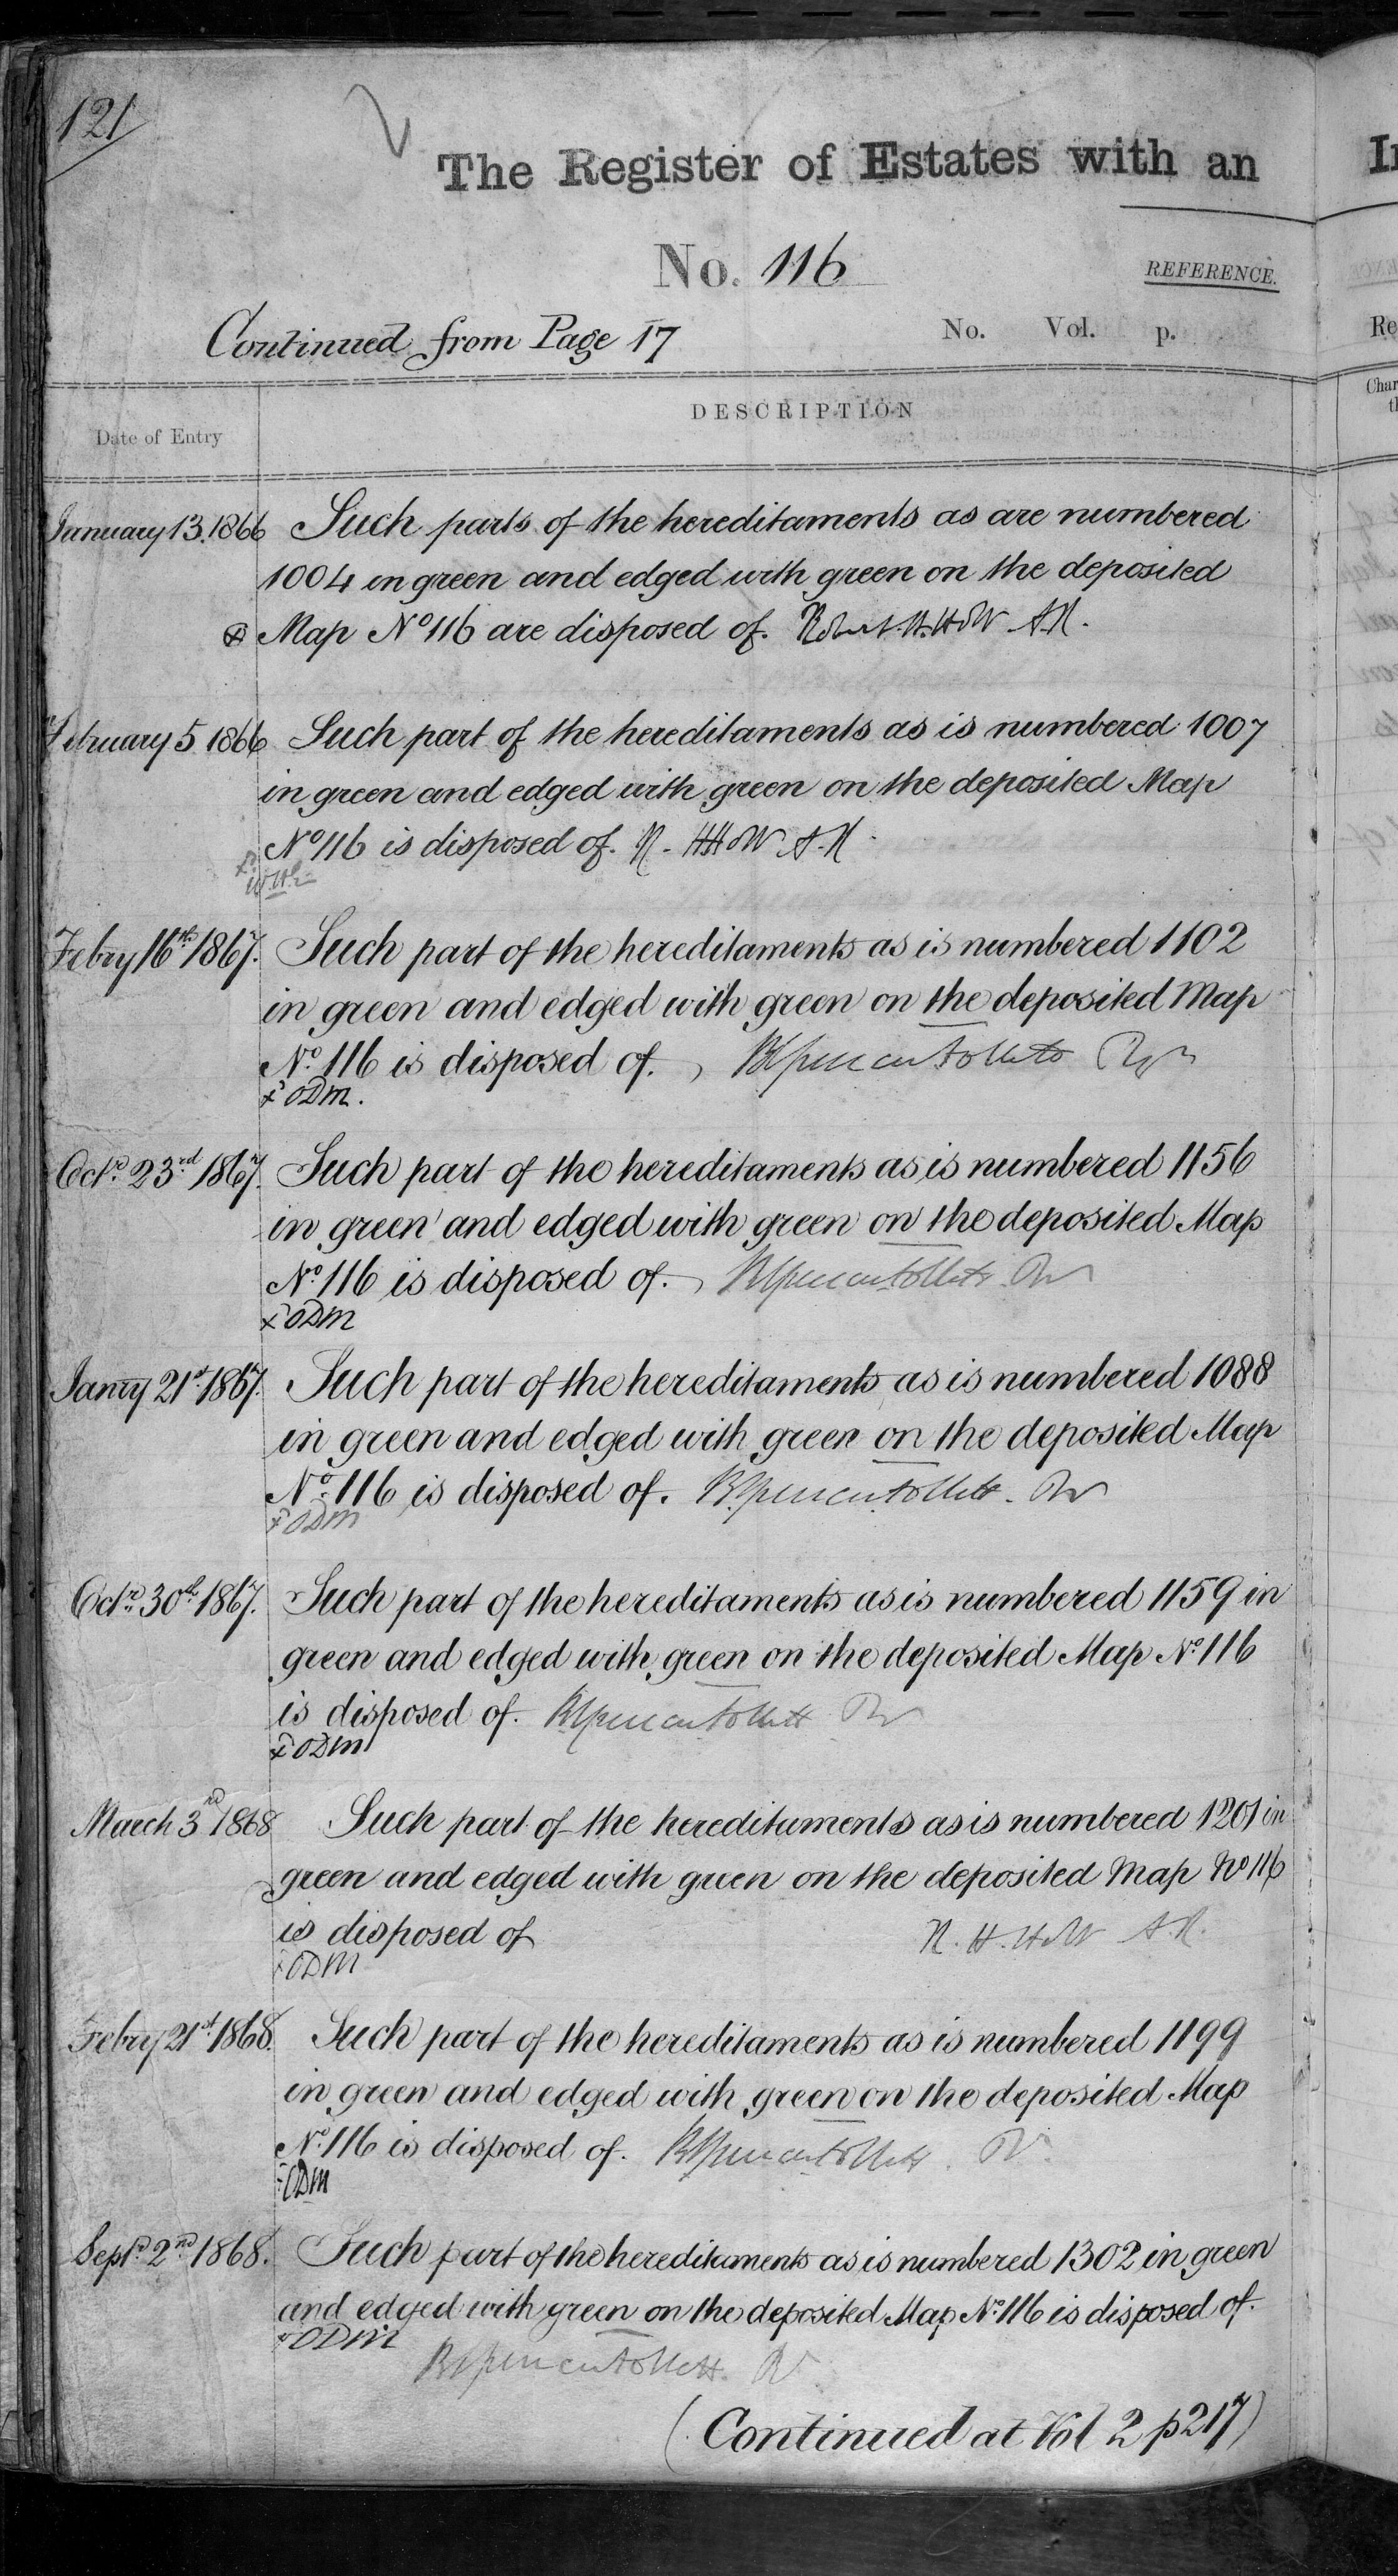 121
The Register of Estates with an
No. 116
REFERENCE.
Continued from Page 17
No. Vol. p.
DESCRIPTION
Date of Entry
January 13. 1866 Such parts of the hereditaments as are numbered
1004 in green and edged with green on the deposited
Map No 116 are disposed of. Robert. H. Holt A.R.
February 5 1866 Such part of the hereditaments as is numbered 1007
in green and edged with green on the deposited Map
No 116 is disposed of. R. H Holt A.R
Febry 16th 1867. Such part of the hereditaments as is numbered 1102
in green and edged with green on the deposited Map
No. 116 is disposed of.
x ODM.
Octr. 23rd 1867. Such part of the hereditaments as is numbered 1156
in green and edged with green on the deposited Map
No. 116 is disposed of.
x ODM
Janry 21st 1867. Such part of the hereditaments as is numbered 1088
in green and edged with green on the deposited Map
No. 116 is disposed of.
x ODM
Octr. 30th 1867. Such part of the hereditaments as is numbered 1159 in
green and edged with green on the deposited Map No. 116
is disposed of.
x ODM
March 3rd 1868 Such part of the hereditaments as is numbered 1201 in
green and edged with green on the deposited Map No 116
is disposed of R. H. Holt A.R.
x ODM
Febry 21st 1868. Such part of the hereditaments as is numbered 1199
in green and edged with green on the deposited Map
No. 116 is disposed of.
ODM
Septr. 2nd 1868. Such part of the hereditaments as is numbered 1302 in green
and edged with green on the deposited Map No. 116 is disposed of.
x ODM
(Continued at Vol 2 p 217)